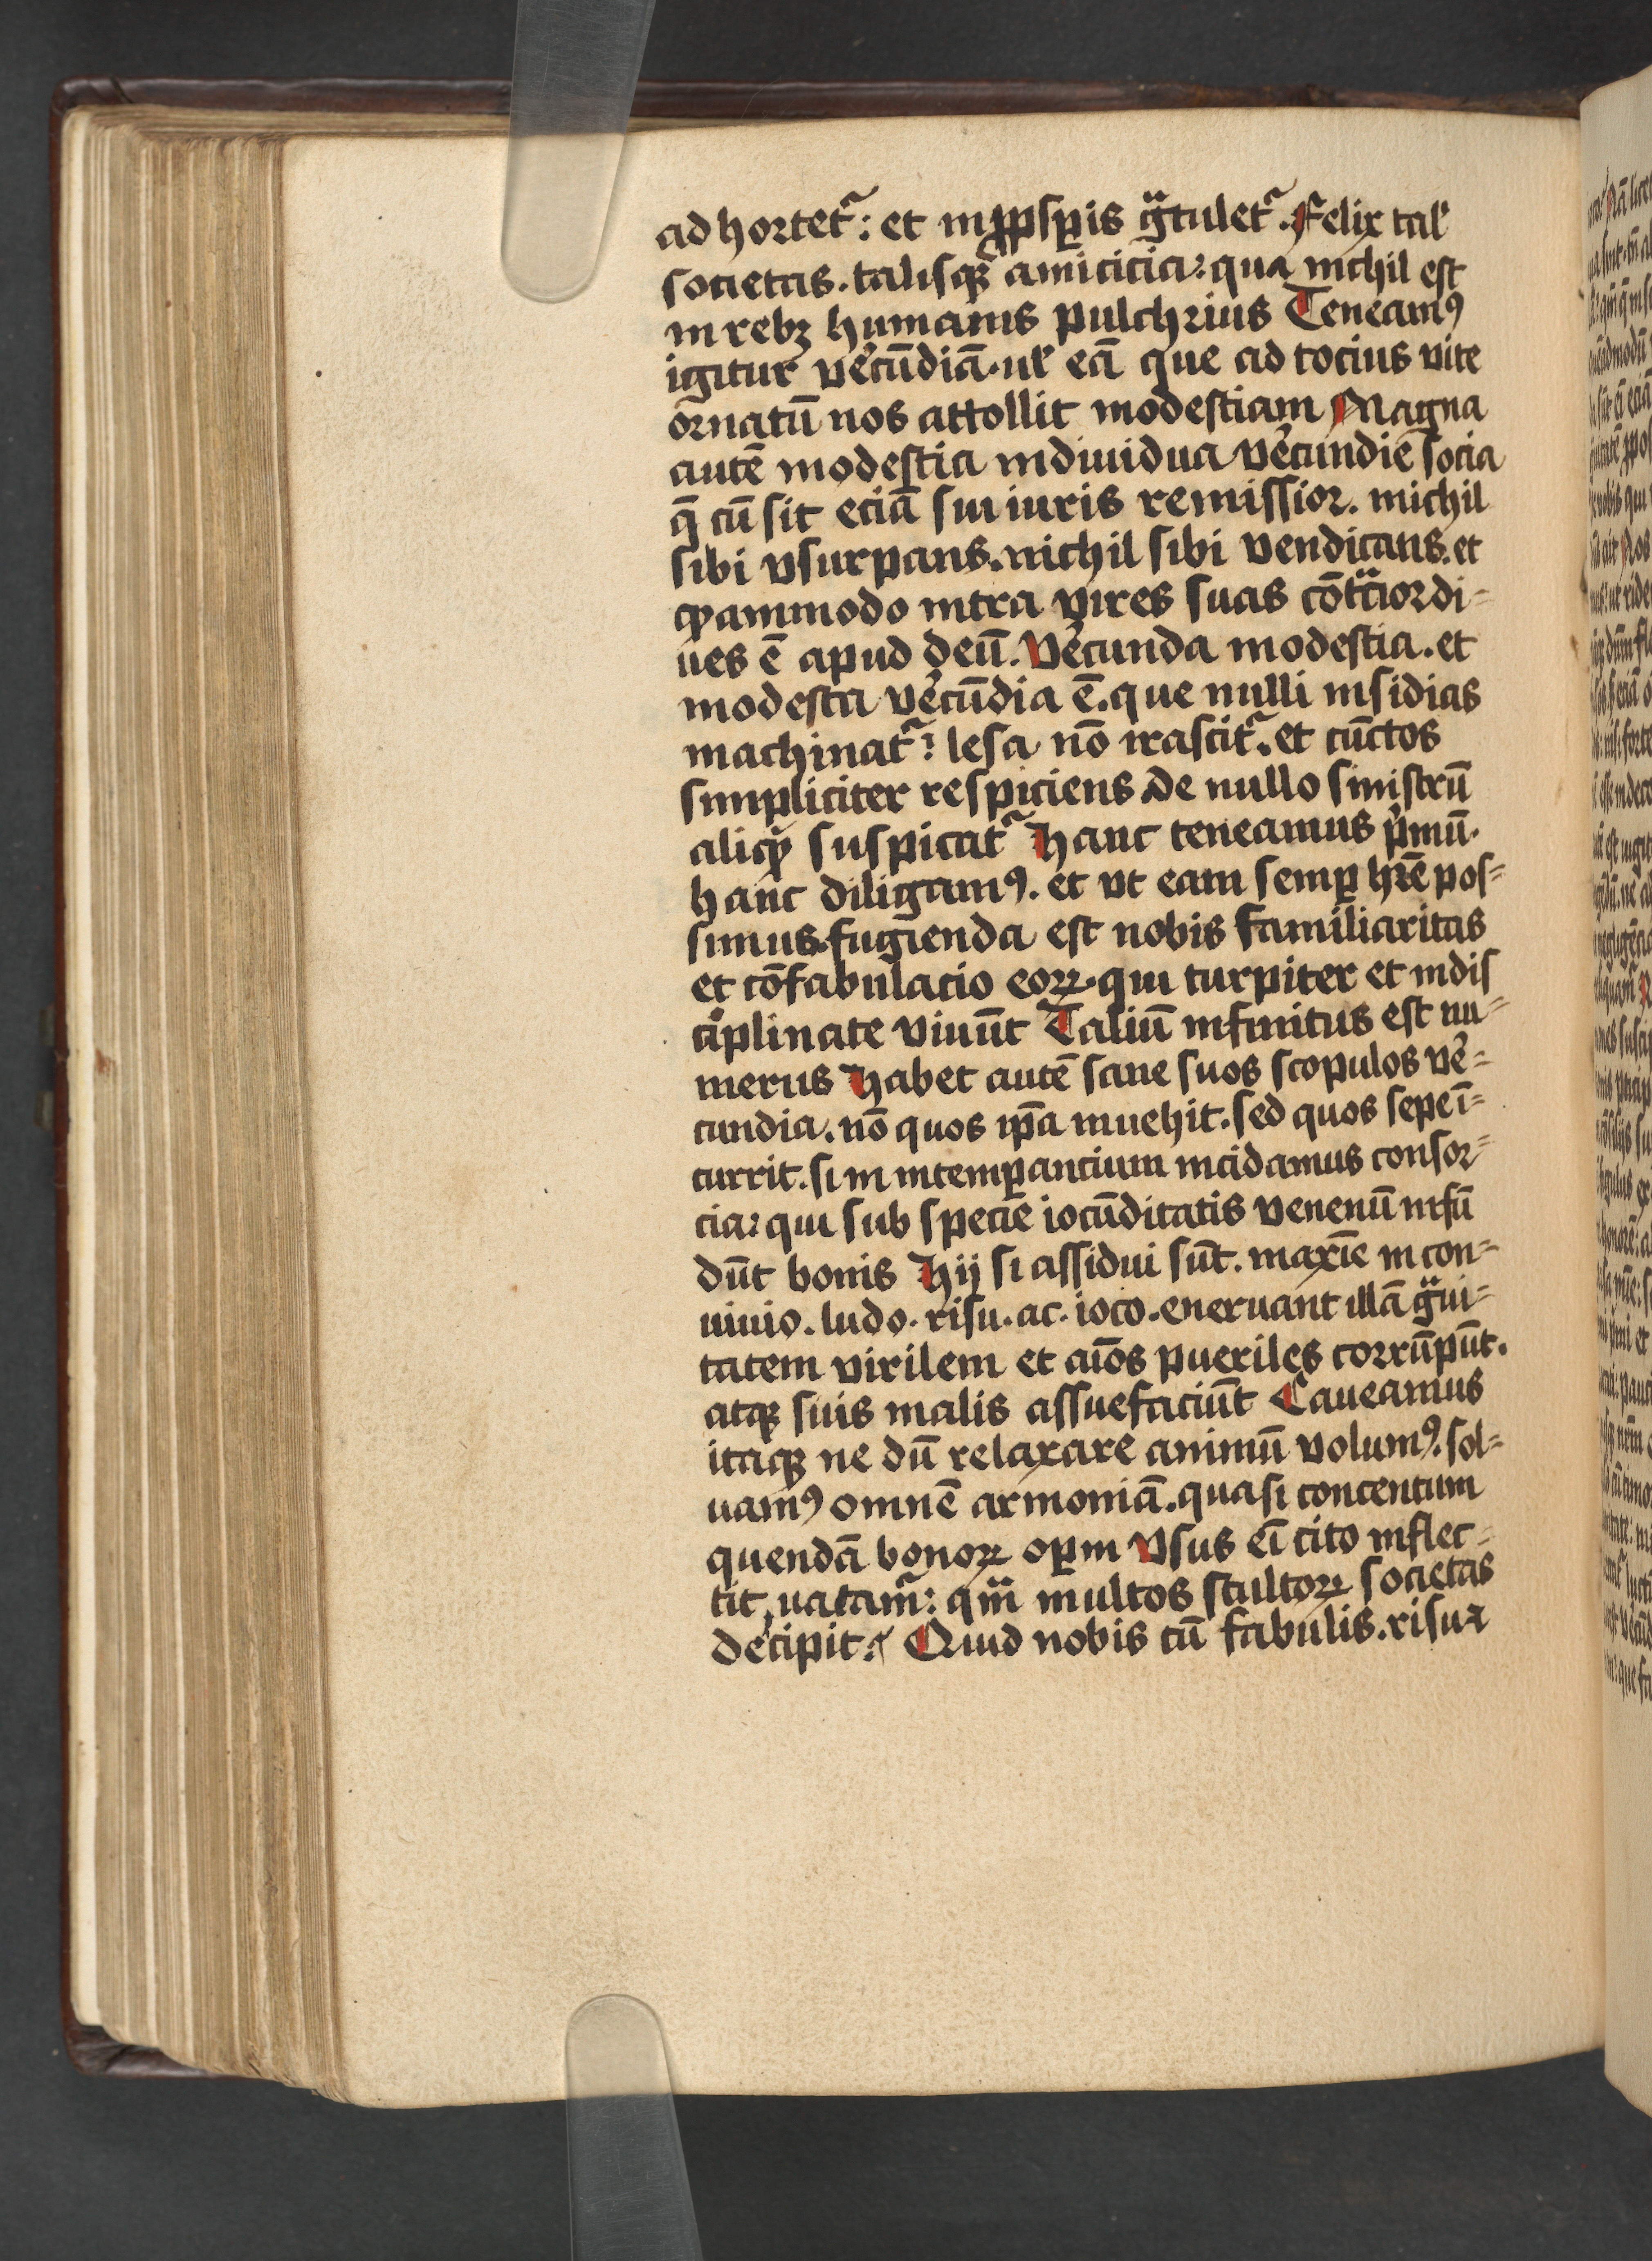 ad hortet᷑: et in ꝓspꝑis gᷓtulet᷑. Felix tal̓
societas. talisqꝫ amicicia: qua nichil est
in rebꝫ humanis pulchrius Teneamꝰ
igitur ve̓cūdiā. ul̓ eā que ad tocius vite
ornatū nos attollit modestiam Magna
autē modestia indiuidua ve̓cundie socia
q̄ cū sit eciā sui iuris remissior. nichil
sibi vsurpans. nichil sibi vendicans. et
qͦdammodo intra vires suas cōtᷓcior di⸗
ues ē apud deū. Ve̓cunda modestia. et
modesta ve̓cūdia ē. que nulli insidias
machinat᷑: lesa nō irascit᷑. et cūctos
simpliciter respiciens de nullo sinistrū
aliqͥd suspicat᷑ Hanc teneamus pͥmū.
hanc diligamꝰ. et vt eam semꝑ hr̄e pos⸗
simus. fugienda est nobis familiaritas
et cōfabulacio eoꝝ. qui turpiter et indis
ciplinate viuūt Taliū infinitus est nu⸗
merus Habet autē sane suos scopulos ve̓⸗
cundia. nō quos ip̄a inuehit. sed quos sepe ī⸗
currit. si in intemꝑancium incidamus consor⸗
cia: qui sub specie iocūditatis venenū infū
dūt bonis Hij si assidui sūt. maxīe in con⸗
uiuio. ludo. risu. ac. ioco. eneruant illā gᷓui⸗
tatem virilem et aīos pueriles corrūpūt.
atqꝫ suis malis assuefaciūt Caueamus
itaqꝫ ne dū relaxare animū volumꝰ. sol⸗
uamꝰ omnē armoniā. quasi concentum
quendā bonoꝝ oꝑm Vsus eī cito inflec⸗
tit natam᷑: qm̄ multos stultoꝝ societas
decipit: Quid nobis cū fabulis. risu ⁊